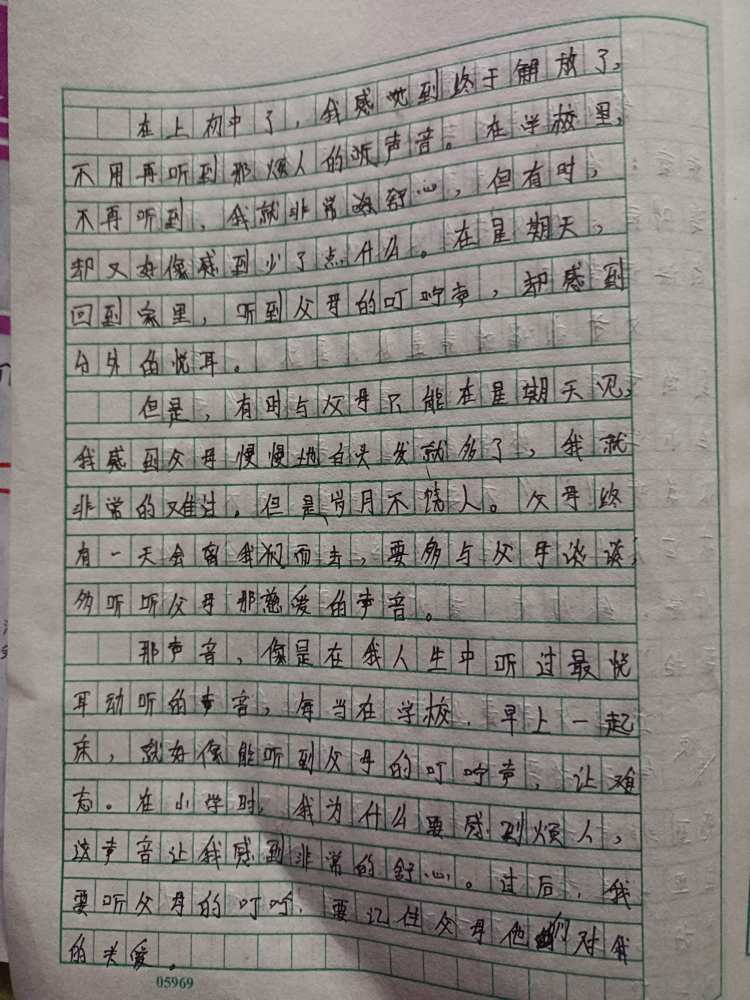 在上初中了，我感觉到终于解放了，
不用再听到那烦人的听声音。在学校里，
不再听到，我就非常的舒心，但有时，
却又好像感到少了点什么。在星期天，
回到家里，听到父母的叮咛声，却感到
分外的悦耳。
但是，有时与父母只能在星期天见，
我感到父母慢慢地白头发就多了，我就
非常的难过，但是岁月不饶人。父母终
有一天会离我们而去，要多与父母谈谈，
多听听父母那慈爱的声音。
那声音，像是在我人生中听过最悦
耳动听的声音，每当在学校，早上一起
床，就好像能听到父母的叮咛声，让难
忘。在小学时，我为什么要感到烦人，
这声音让我感到非常的舒心。过后，我
要听父母的叮咛，要记住父母他们对我
的关爱。
05969